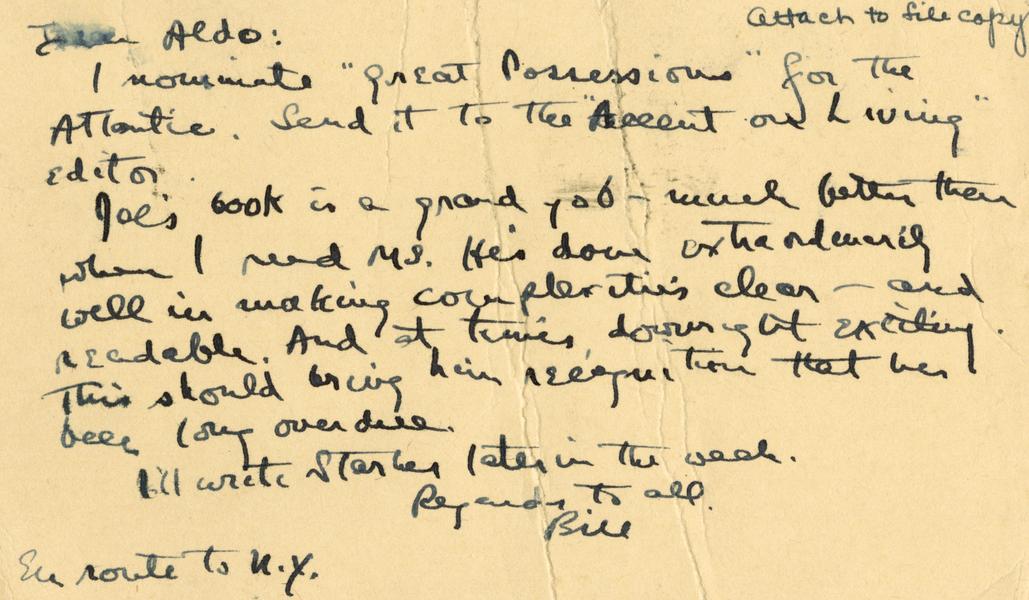 Attach to file copy
Dear Aldo:
I nominate "Great Possessions" for the
Atlantic. Send it to the "Accent on Living"
editor.
Joe's book is a grand job - much better than
when I read MS. He's done extraordinarily
well in making complexities clear - and
readable. And at times downright exciting.
This should bring him recognition that has
been long overdue.
I'll write Starker later in the week.
Regards to all.
Bill
En route to N.Y.